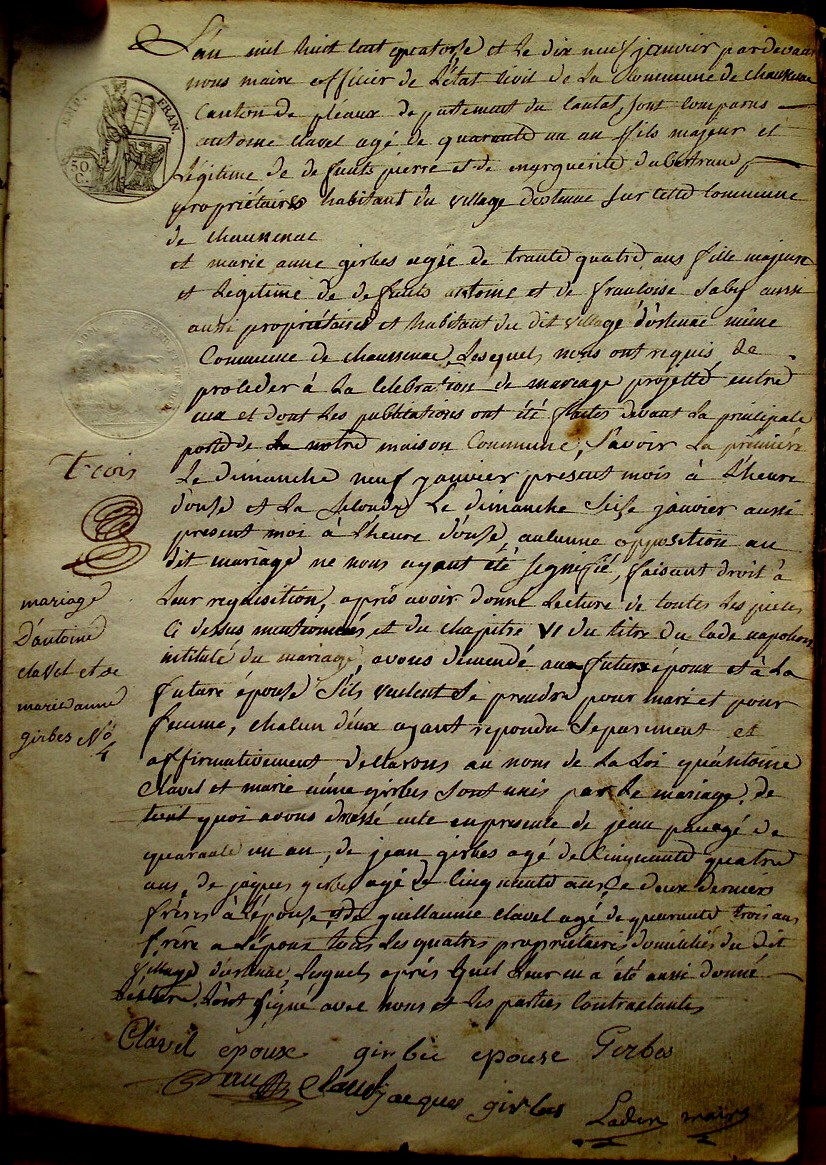 L'an mil huit cent quatorse et le dix neuf janvier pardevant
nous maire officier de L'état Civil de La Commune de chaussenac
Canton de pléaux département du Cantal, sont Comparus
antoine clavel agé de quarante un an fils majeur et
Légitime de defunts pierre et de marguerite dubertrand
propriétaires habitant du village dostenac sur cette Commune
de chaussenac
et marie anne girbes agée de trante quatre ans fille majeure
et Legitime de defunts antoine et de francoise Saby aussi
aussi propriétaires et habitant du dit village d'ostenac même
Commune de chaussenac, Lesquels nous ont requis de
proceder à La Celebration de mariage projetté entre
eux et dont Les publications ont été faites devant La principale
porte de notre maison Commune, Savoir La première
Le dimanche neuf janvier present mois à L'heure
douse et La seconde Le dimanche seise janvier aussi
present moi à L'heure d'ouse, aucunne opposition au
dit mariage ne nous ayant été signifié, faisant droit à
Leur requisition, aprés avoir donné Lecture de toutes Les pieces
Ci dessus mentionnés et du chapitre VI du titre du Code napoléon
institulé du mariage, avons demendé au futur époux et à La
future épouse S'ils veulent Se prendre pour mari et pour
femme, chacun d'eux ayant repondu Separement et
affirmativement declarons au nom de La Loi qu'antoine
Clavel et marie anne girbes Sont unis par Le mariage. de
tout quoi avons dressé acte en presence de jean agé de
quarante un an, de jean girbes agé de Cinquante quatre
ans, de jacques girbes agé de Cinquante ans, Ce deux derniers
freres à L'épouse, de guillaume Clavel agé de quarante trois ans
frère a L'époux tous Les quatres propriétaires domiciliés du dit
village dostenac, Lesquels aprés quil Leur en a été aussi donné
Lecture, L'ont Signé avec nous et Les parties Contractantes
Clavel epoux girbée epouse Girbes
Clavel jacques girbes maire
EMP. FRAN.
50 C.
Trois
mariage
D'antoine
clavel et de
marie anne
girbes No
4